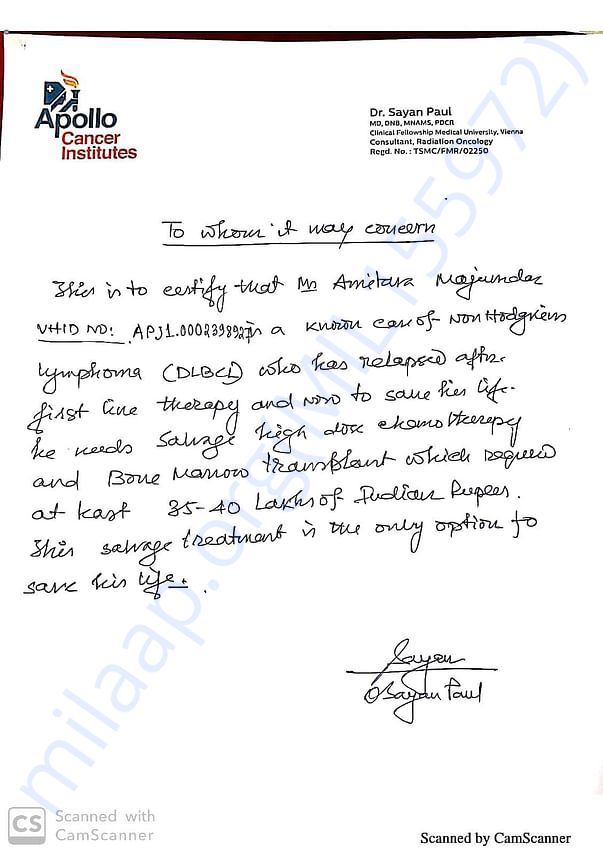 Apollo
Cancer
Institutes
Dr. Sayan Paul
MD, DNB, MNAMS, PDCR
Clinical Fellowship Medical University, Vienna
Consultant, Radiation Oncology
Regd. No.: TSMC/FMR/02250
To whom it may concern
This is to certify that Mr Amitava Majumdar
VHID NO: APJ1.0002398927 is a known case of Non Hodgkins
Lymphoma (DLBCL) who has relapsed after
first line therapy and now to save his life.
he needs salvage high dose chemotherapy
and Bone Marrow transplant which required
at least 35-40 Lakhs of Indian Rupees.
This salvage treatment is the only option to
save his life.
Sayan
Sayan Paul
milaap.org(MIL155972)
CS Scanned with
CamScanner
Scanned by CamScanner